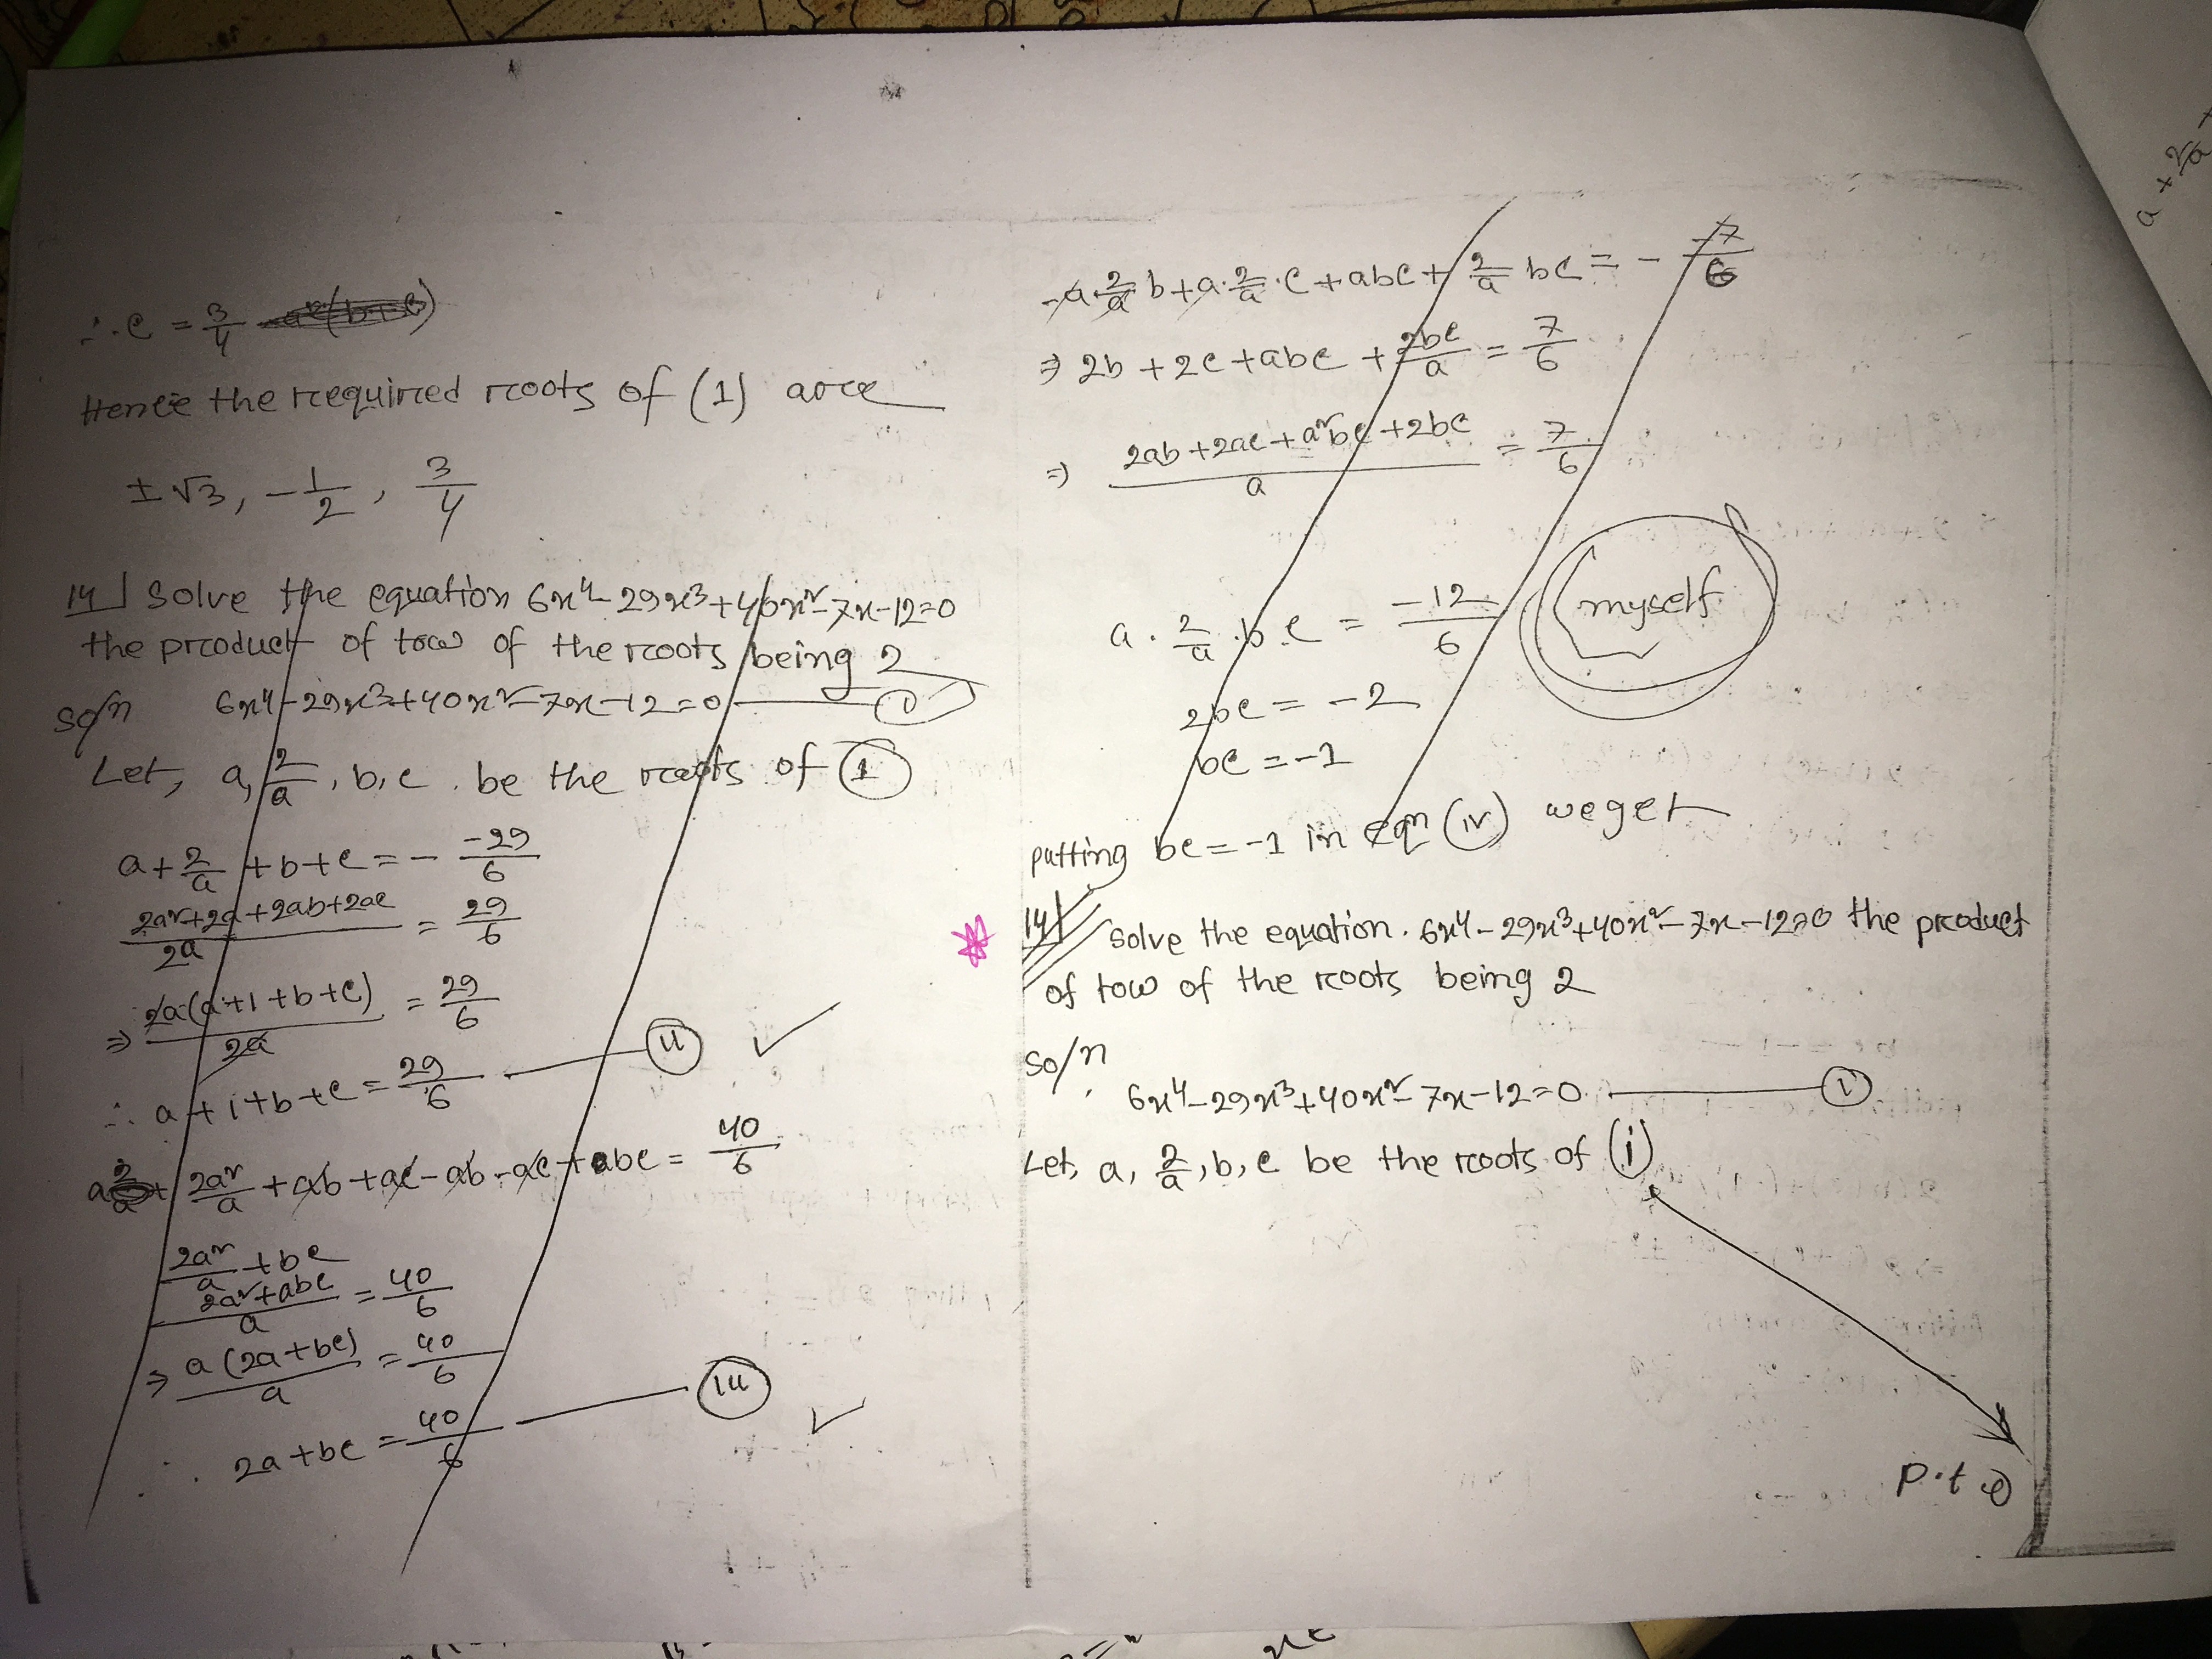 ∴ c = 3/4
Hence the required roots of (1) are
± √3, -1/2, 3/4
14| Solve the equation 6x⁴-29x³+40x²-7x-12=0
the product of tow of the roots being 2
so/n 6x⁴-29x³+40x²-7x-12=0 (1)
Let, a, 2/a, b, c. be the roots of (1)
a + 2/a + b + c = - -29/6
(2a²+2a+2ab+2ac)/2a = 29/6
⇒ 2a(a+1+b+c)/2a = 29/6
∴ a+1+b+c = 29/6 (ii) ✓
a 2/a + 2a²/a + ab + ac - ab - ac + abc = 40/6
2a²/a + bc
(2a²+abc)/a = 40/6
⇒ a(2a+bc)/a = 40/6
∴ 2a+bc = 40/6 (iii) ✓
-a·2/a b + a·2/a·c + abc + 2/a bc = - -7/6
⇒ 2b + 2c + abc + 2bc/a = 7/6
⇒ (2ab+2ac+a²bc+2bc)/a = 7/6
a · 2/a · b c = -12/6
myself
2bc = -2
bc = -1
putting bc = -1 in eqn (iv) we get
14| Solve the equation. 6x⁴-29x³+40x²-7x-12=0 the product
of tow of the roots being 2
so/n
6x⁴-29x³+40x²-7x-12=0 (i)
Let, a, 2/a, b, c be the roots of (i)
P.t.o
a + 2/a +